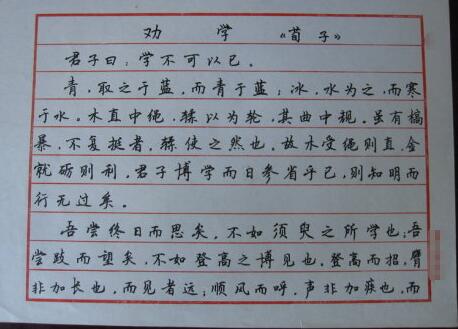 劝 学 《荀子》
君子曰：学不可以已。
青，取之于蓝，而青于蓝；冰，水为之，而寒
于水。木直中绳，輮以为轮，其曲中规。虽有槁
暴，不复挺者，輮使之然也。故木受绳则直，金
就砺则利，君子博学而日参省乎己，则知明而
行无过矣。
吾尝终日而思矣，不如须臾之所学也；吾
尝跂而望矣，不如登高之博见也，登高而招，臂
非加长也，而见者远；顺风而呼，声非加疾也，而